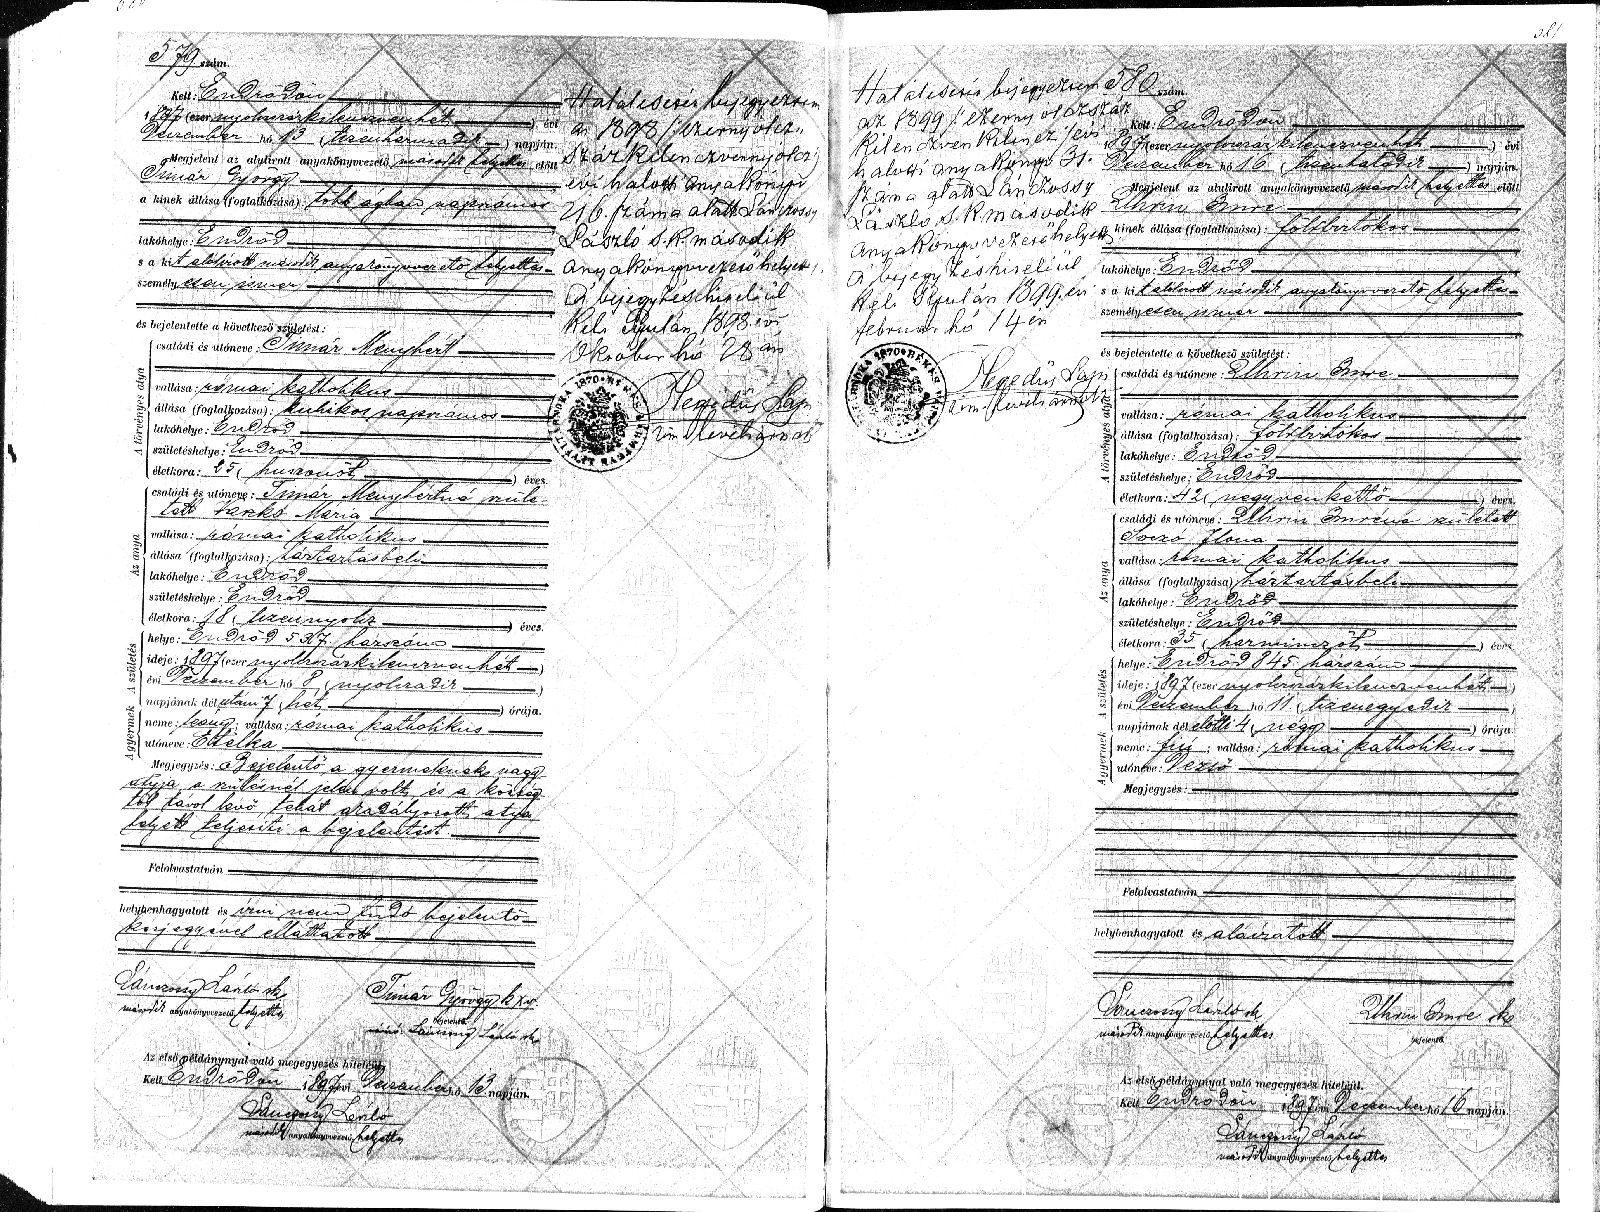 579 szám.
Kelt: Endrődön
1897 (ezer nyolczszázkilenczvenhét) évi
Deczember hó 13 (tizenharmadik) napján.
Megjelent az alulirott anyakönyvvezető második helyettes előtt
Timár György
a kinek állása (foglalkozása): több ágban napszámos
lakóhelye: Endrőd
s a kit alulirott második anyakönyvvezető helyettes
személyesen ismer
és bejelentette a következő születést:
A törvényes atya
családi és utóneve: Timár Menyhért
vallása: római katholikus
állása (foglalkozása): kubikos napszámos
lakóhelye: Endrőd
születéshelye: Endrőd
életkora: 25 (huszonöt) éves.
Az anya
családi és utóneve: Timár Menyhértné szüle-
tett Varkó Mária
vallása: római katholikus
állása (foglalkozása): háztartásbeli
lakóhelye: Endrőd
születéshelye: Endrőd
életkora: 18 (tizennyolcz) éves.
A születés
helye: Endrőd 527. házszám
ideje: 1897 (ezer nyolczszázkilenczvenhét)
évi Deczember hó 8 (nyolczadik)
napjának délutáni 7 (hét) órája.
A gyermek
neme: leány; vallása: római katholikus
utóneve: Etelka
Megjegyzés: Bejelentő a gyermeknek nagy
atyja, a szülésnél jelen volt, és a község
től távol levő, tehát akadályozott atya
helyett teljesíti a bejelentést
Felolvastatván
helybenhagyatott és írni nem tudó bejelentő
kézjegyével elláttatott
Lánczossy László sk
második anyakönyvvezető helyettes
Timár György k x v.
bejelentő.
Lánczossy László sk.
Az első példánynyal való megegyezés hiteléül.
Kelt Endrődön 1897 évi Deczember hó 13 napján.
Lánczossy László
második anyakönyvvezető helyettes
Halálesetés bejegyzésem
az 1898 / ezernyolcz
százkilenczvennyolcz /
évi halotti anyakönyvi
216. száma alatt Lánczossy
László s.k. második
anyakönyvvezető helyettes.
A bejegyzés hiteléül
Kelt Gyulán, 1898 évi
Október hó 28 án
Hegedüs
Halálesetés bejegyzésem
az 1899 / ezernyolczszáz
kilenczvenkilencz / évi
halotti anyakönyv 31.
száma alatt Lánczossy
László s.k. második
anyakönyvvezető helyettes
A bejegyzés hiteléül
Kelt Gyulán 1899. évi
február hó 14 én
Hegedüs
580 szám.
Kelt: Endrődön
1897 (ezer nyolczszázkilenczvenhét) évi
Deczember hó 16 (tizenhatodik) napján.
Megjelent az alulirott anyakönyvvezető második helyettes előtt
Uhrin Imre
a kinek állása (foglalkozása): földbirtokos
lakóhelye: Endrőd
s a kit alulirott második anyakönyvvezető helyettes
személyesen ismer
és bejelentette a következő születést:
A törvényes atya
családi és utóneve: Uhrin Imre
vallása: római katholikus
állása (foglalkozása): földbirtokos
lakóhelye: Endrőd
születéshelye: Endrőd
életkora: 42 (negyvenkettő) éves.
Az anya
családi és utóneve: Uhrin Imréné született
Soczó Ilona
vallása: római katholikus
állása (foglalkozása): háztartásbeli
lakóhelye: Endrőd
születéshelye: Endrőd
életkora: 35 (harminczöt) éves
A születés
helye: Endrőd 845. házszám
ideje: 1897 (ezer nyolczszázkilenczvenhét)
évi Deczember hó 11 (tizenegyedik)
napjának délelőtti 4 (négy) órája
A gyermek
neme: fiú; vallása: római katholikus
utóneve: Dezső
Megjegyzés:
Felolvastatván
helybenhagyatott és aláíratott
Lánczossy László sk
második anyakönyvvezető helyettes
Uhrin Imre sk
bejelentő.
Az első példánynyal való megegyezés hiteléül.
Kelt Endrődön 1897 évi Deczember hó 16 napján.
Lánczossy László
második anyakönyvvezető helyettes